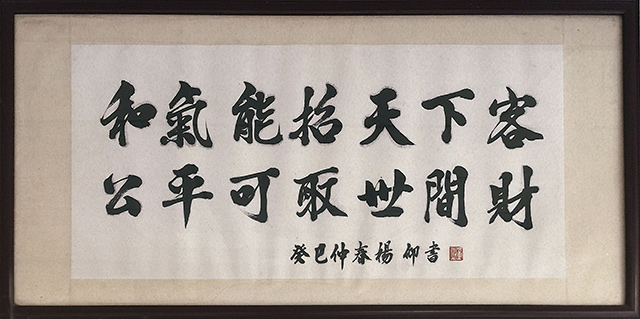 和氣能招天下客
公平可取世間財
癸巳仲春楊仰書